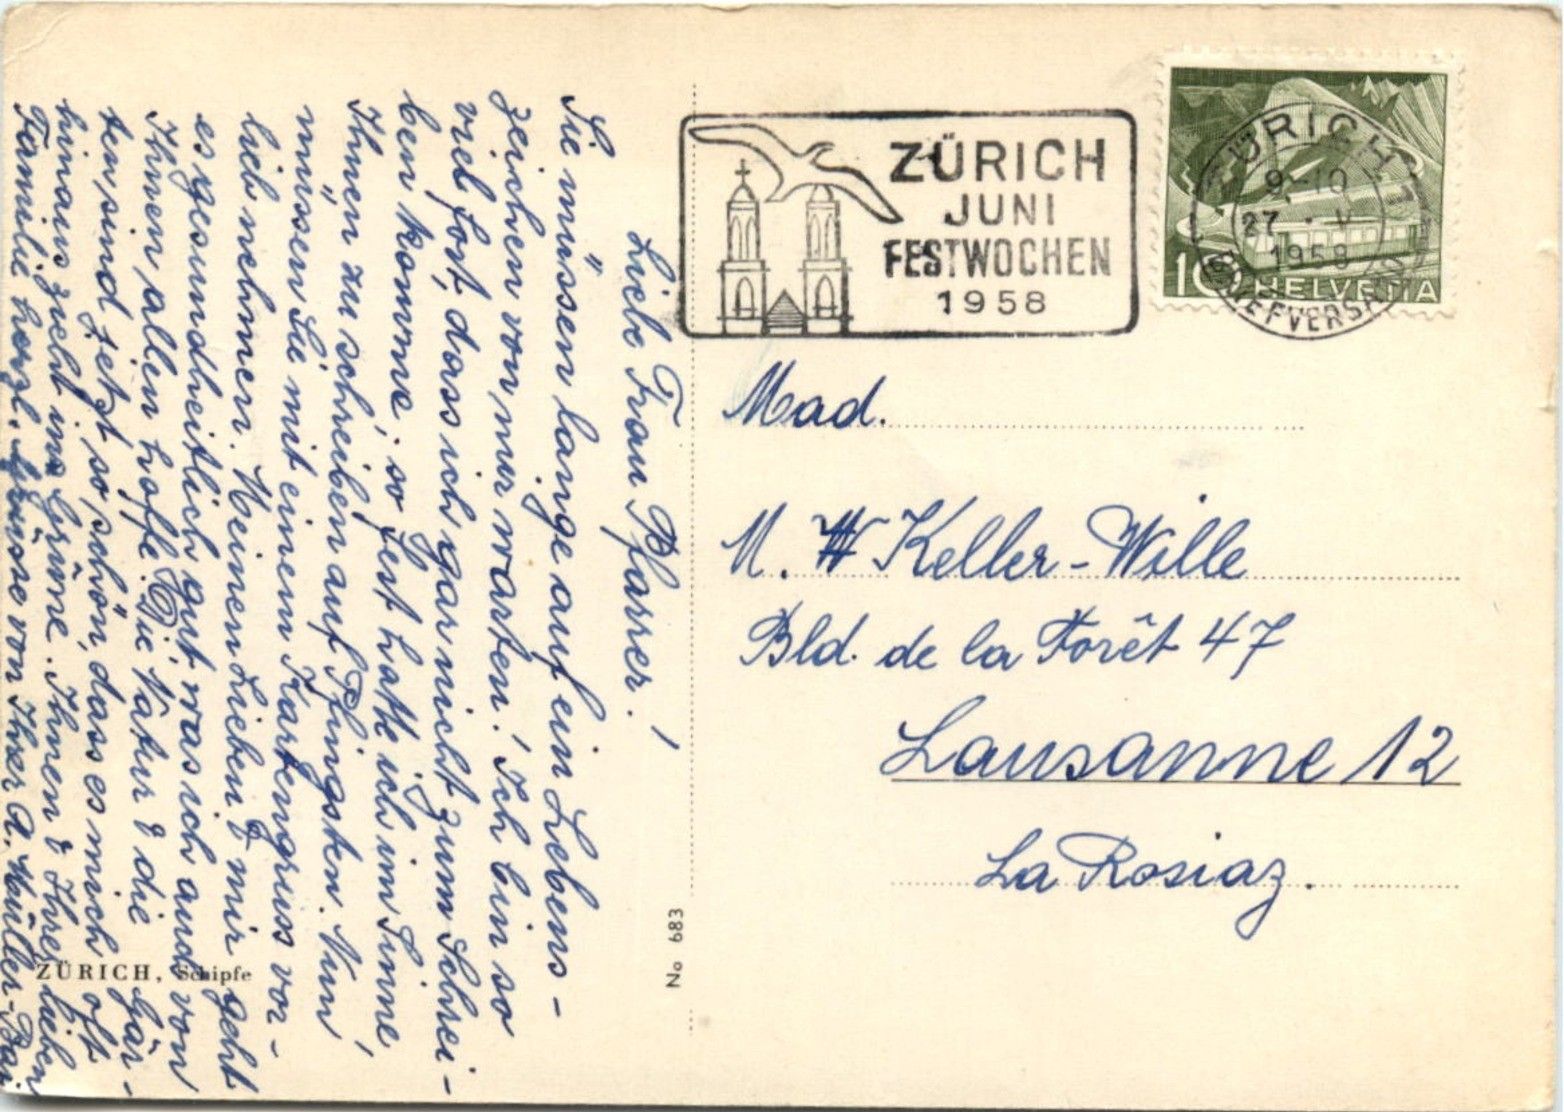 Liebe Frau Pfarrer!
Sie müssen lange auf ein Lebens-
zeichen von mir warten! Ich bin so
viel fort, dass ich gar nicht zum Schrei-
ben komme, so fest hatte ich im Sinne,
Ihnen zu schreiben auf Pfingsten. Nun
müssen Sie mit einem Kartengruss vor-
lieb nehmen. Meinen Lieben & mir geht
es gesundheitlich gut, was ich auch von
Ihnen allen hoffe. Die Natur & die Gär-
ten sind jetzt so schön, dass es mich oft
hinaus zieht ins Grüne. Ihnen & Ihrer lieben
Familie herzl. Grüsse von Ihrer A. Müller-
ZÜRICH, Schipfe
No 683
ZÜRICH
JUNI
FESTWOCHEN
1958
ZÜRICH 1
9-10
27. V
1958
BRIEFVERSAND
10 HELVETIA
Mad.
M. W Keller-Wille
Bld. de la Forêt 47
Lausanne 12
La Rosiaz.